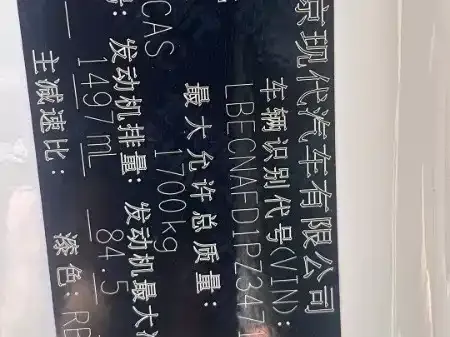 京现代汽车有限公司
车辆识别代号(VIN):
LBECNAFD1PZ347
最大允许总质量:
CAS 1700kg
号: 发动机排量: 发动机最大
1497mL 84.5
主减速比: 漆色: RB